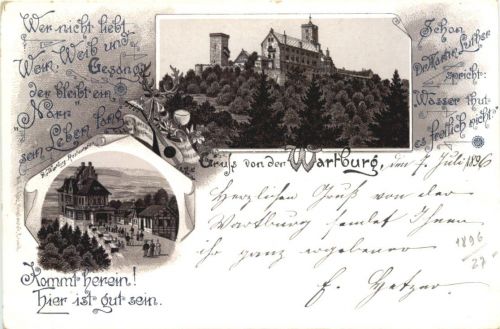 Wer nicht liebt
Wein, Weib und
Gesang
der bleibt ein
"Narr"
sein Leben lang
Schon
Dr. Martin Luther
spricht:
Wasser thut
es freilich nicht"
Gruss von der Wartburg, den 7. Juli 1896
Herzlichen Gruß von der
Wartburg sendet Ihnen
ihr ganz ergebener
1896
27
Kommt herein!
Hier ist gut sein.